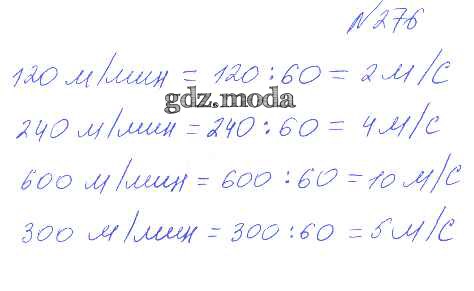 №276
120 м/мин = 120 : 60 = 2 м/с
gdz.moda
240 м/мин = 240 : 60 = 4 м/с
600 м/мин = 600 : 60 = 10 м/с
300 м/мин = 300 : 60 = 5 м/с